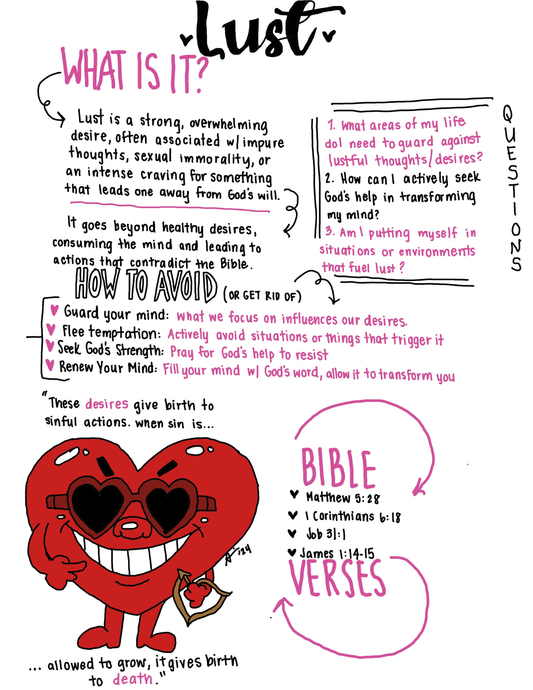 Lust
WHAT IS IT?
Lust is a strong, overwhelming
desire, often associated w/ impure
thoughts, sexual immorality, or
an intense craving for something
that leads one away from God's will.
It goes beyond healthy desires,
consuming the mind and leading to
actions that contradict the Bible.
1. What areas of my life
do I need to guard against
lustful thoughts/desires?
2. How can I actively seek
God's help in transforming
my mind?
3. Am I putting myself in
situations or environments
that fuel lust?
QUESTIONS
HOW TO AVOID (OR GET RID OF)
Guard your mind: What we focus on influences our desires.
Flee temptation: Actively avoid situations or things that trigger it
Seek God's Strength: Pray for God's help to resist
Renew Your Mind: Fill your mind w/ God's word, allow it to transform you
"These desires give birth to
sinful actions. When sin is...
'24
... allowed to grow, it gives birth
to death."
BIBLE
Matthew 5:28
1 Corinthians 6:18
Job 31:1
James 1:14-15
VERSES